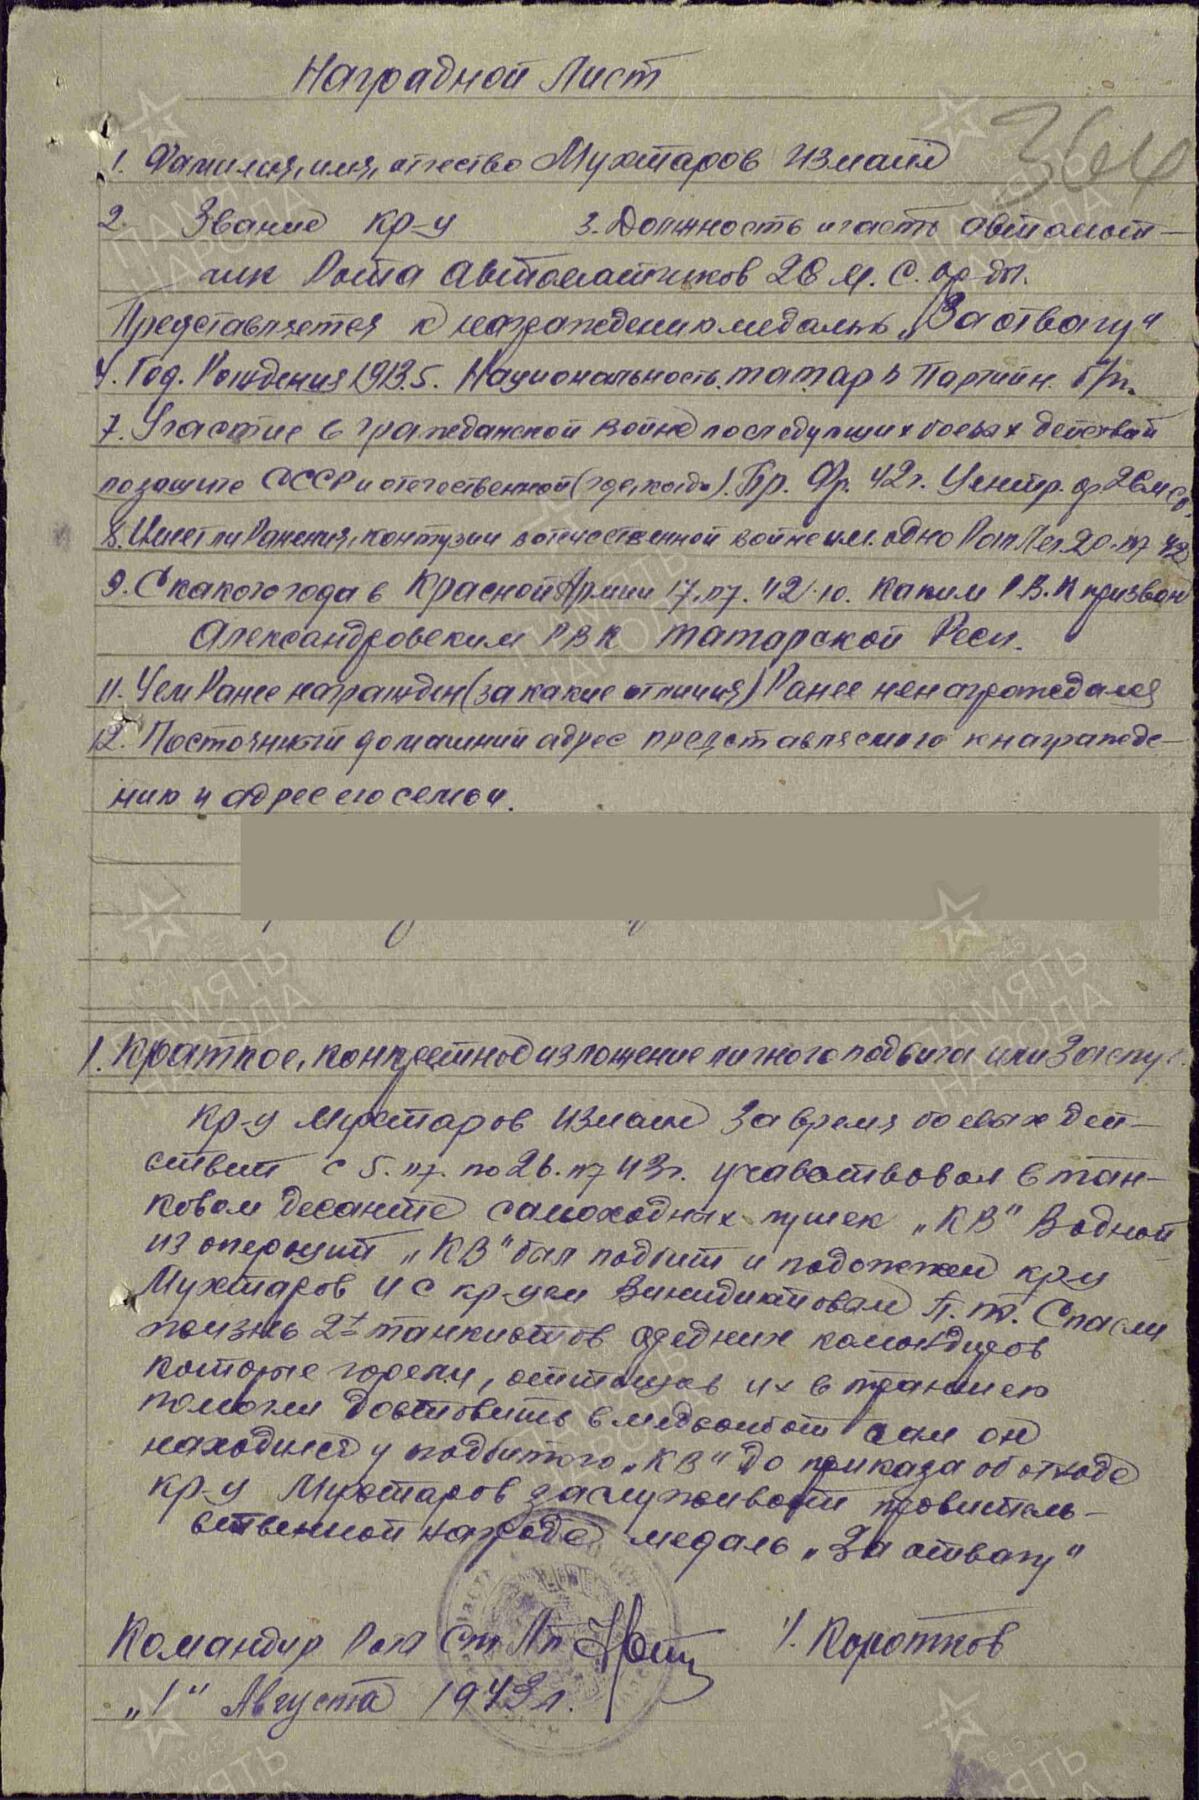 Наградной Лист
364
1. Фамилия, имя, отчество Мухтаров Измаил
2. Звание кр-ц 3. Должность и часть автомат-
чик Рота Автоматчиков 26 М. С. бр-ды.
Представляется к награждению медалью „За отвагу"
4. Год. Рождения 1913. 5. Национальность. татар 6 Партийн. б/п.
7. Участие в гражданской войне последующих боевых действий
по защите СССР и отечественной (где, когда). Бр. Фр. 42г. Центр. ф 26 м с
8. Имеет ли Ранения, контузии в отечественной войне им. одно 42
9. С какого года в Красной Армии 17 42 10. Каким Р.В.К призван
Александровским РВК татарской Респ.
11. Чем Ранее награжден (за какие отличия) Ранее ненаграждался
12. Постоянный домашний адрес представляемого к награжде-
нию и адрес его семьи.
1. Краткое, конкретное изложение личного подвига или Заслуг.
кр-ц Мухтаров Измаил За время боевых дей-
ствий с 5. по 26. 43г. учавствовал в тан-
ковом десанте самоходных пушек „КВ" В одной
из операций „КВ" был подбит и подожжен кр-ц
Мухтаров И с кр-цем П. Спасли
жизнь 2х танкистов средних командиров
которые горели, оттащив их в траншею
помогли доставить в медсанбат сам он
находился у подбитого „КВ" до приказа об отходе
кр-ц Мухтаров заслуживает правитель-
ственной награде медаль „За отвагу"
Командир Рот Ст Л-т /. Коротков
„1" Августа 1943 г.
ПАМЯТЬ НАРОДА
1941-1945